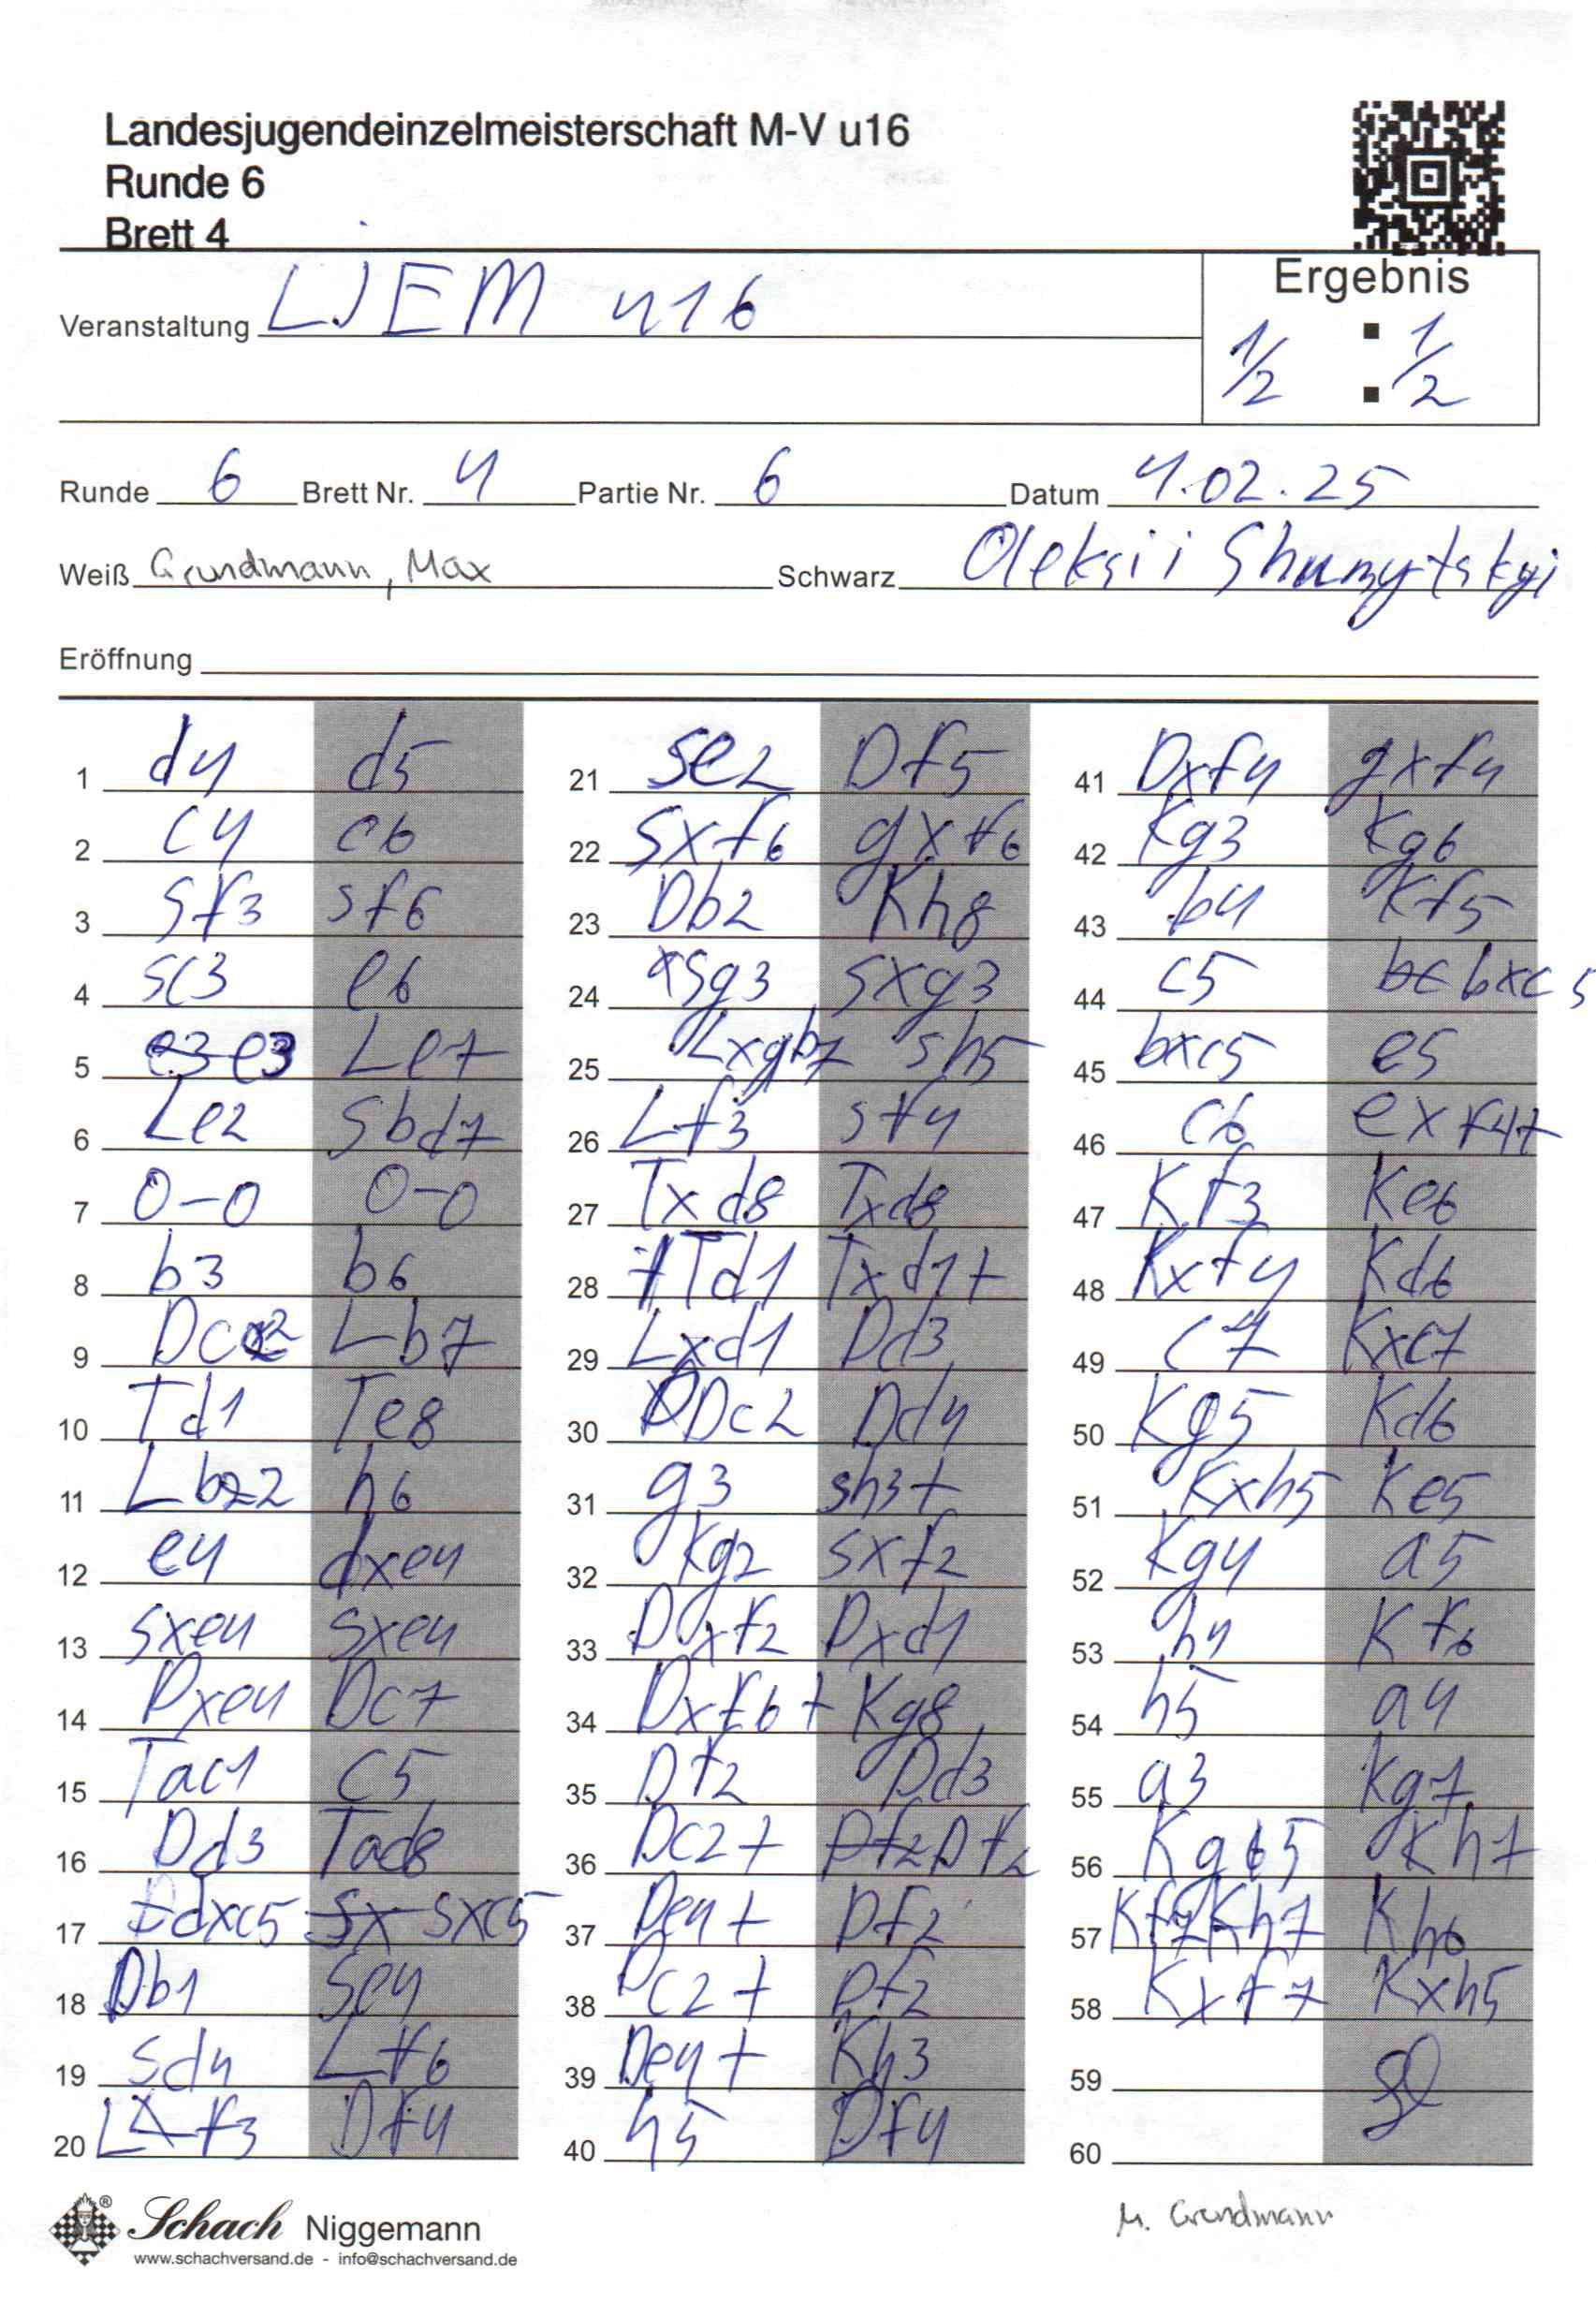 Landesjugendeinzelmeisterschaft M-V u16
Runde 6
Brett 4
Veranstaltung LJEM u16
Ergebnis
1/2 : 1/2
Runde 6 Brett Nr. 4 Partie Nr. 6 Datum 4.02.25
Weiß Grundmann, Max Schwarz Oleksii Shumytskyi
Eröffnung
1 d4 d5
2 c4 c6
3 Sf3 Sf6
4 Sc3 e6
5 e3 e3 Le7
6 Le2 Sbd7
7 0-0 0-0
8 b3 b6
9 Dc2 Lb7
10 Td1 Te8
11 Lb2 h6
12 e4 dxe4
13 Sxe4 Sxe4
14 Dxe4 Dc7
15 Tac1 c5
16 Dd3 Tad8
17 dxc5 Sx Sxc5
18 Db1 Se4
19 Sd4 Lf6
20 Lf3 Df4
21 Se2 Df5
22 Sxf6 gxf6
23 Db2 Kh8
24 Sg3 Sxg3
25 Lxb7 Sh5
26 Lf3 Sf4
27 Txd8 Txd8
28 Td1 Txd1+
29 Lxd1 Dd3
30 Dc2 Dd4
31 g3 Sh3+
32 Kg2 Sxf2
33 Dxf2 Dxd1
34 Dxf6+ Kg8
35 Df2 Dd3
36 Dc2+ Df2 Df2
37 De4+ Df2
38 Dc2+ Df2
39 De4+ Kh3
40 h5 Df4
41 Dxf4 gxf4
42 Kg3 Kg6
43 b4 Kf5
44 c5 bc bxc5
45 bxc5 e5
46 c6 exf4+
47 Kf3 Ke6
48 Kxf4 Kd6
49 c7 Kxc7
50 Kg5 Kd6
51 Kxh5 Ke5
52 Kg4 a5
53 h4 Kf6
54 h5 a4
55 a3 Kg7
56 Kg5 Kh7
57 Kf7 Kh7 Kh6
58 Kxf7 Kxh5
59
60
M. Grundmann
Schach Niggemann
www.schachversand.de - info@schachversand.de